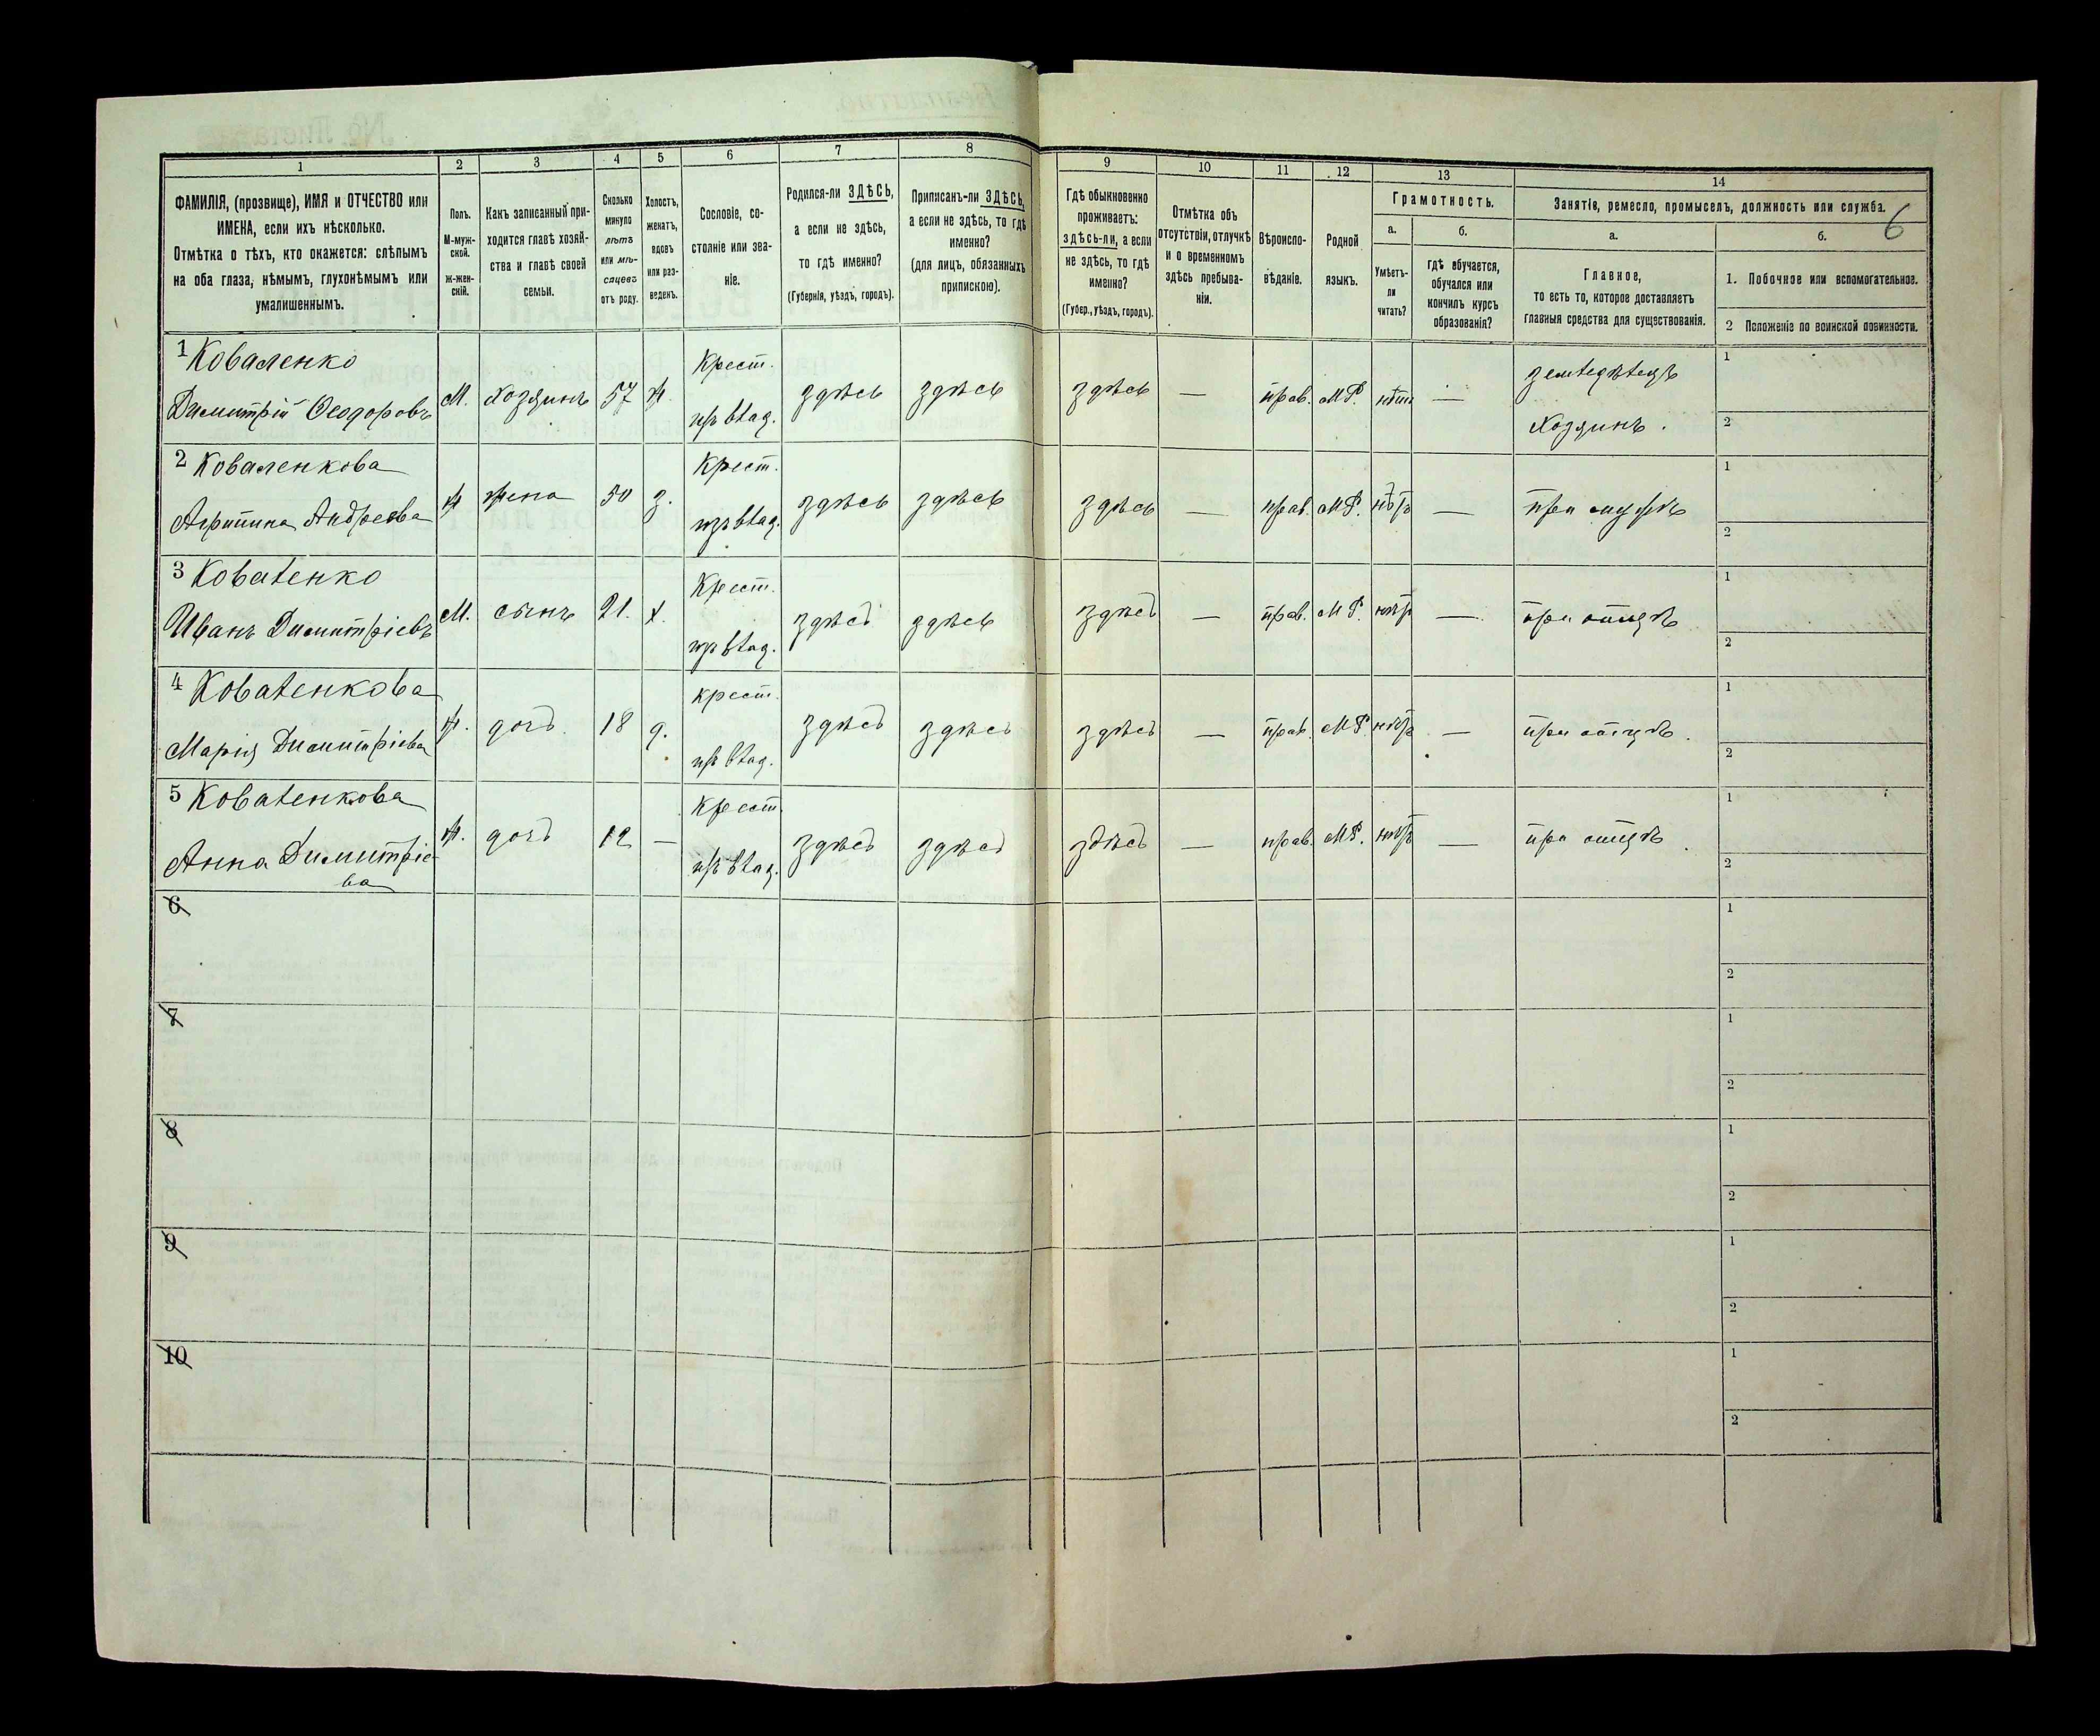 6
1
2
3
4
5
6
7
8
9
10
11
12
13
14
ФАМИЛІЯ, (прозвище), ИМЯ и ОТЧЕСТВО или
ИМЕНА, если ихъ нѣсколько.
Отмѣтка о тѣхъ, кто окажется: слѣпымъ
на оба глаза, нѣмымъ, глухонѣмымъ или
умалишеннымъ.
Полъ.
М-муж-
ской.
Ж-жен-
скій.
Какъ записанный при-
ходится главѣ хозяй-
ства и главѣ своей
семьи.
Сколько
минуло
лѣтъ
или мѣ-
сяцевъ
отъ роду.
Холостъ,
женатъ,
вдовъ
или раз-
веденъ.
Сословіе, со-
стояніе или зва-
ніе.
Родился-ли ЗДѢСЬ,
а если не здѣсь,
то гдѣ именно?
(Губернія, уѣздъ, городъ).
Приписанъ-ли ЗДѢСЬ,
а если не здѣсь, то гдѣ
именно?
(для лицъ, обязанныхъ
припискою).
Гдѣ обыкновенно
проживаетъ:
здѣсь-ли, а если
не здѣсь, то гдѣ
именно?
(Губер., уѣздъ, городъ).
Отмѣтка объ
отсутствіи, отлучкѣ
и о временномъ
здѣсь пребыва-
ніи.
Вѣроиспо-
вѣданіе.
Родной
языкъ.
Грамотность.
а.
Умѣетъ-
ли
читать?
б.
гдѣ обучается,
обучался или
кончилъ курсъ
образованія?
Занятіе, ремесло, промыселъ, должность или служба.
а.
Главное,
то есть то, которое доставляетъ
главныя средства для существованія.
б.
1. Побочное или вспомогательное.
2 Положеніе по воинской повинности.
1 Коваленко
Димитрій Ѳеодоровъ
М.
хозяинъ
57
ж.
Крест.
изъ влад.
здѣсь
здѣсь
здѣсь
—
прав.
М Р.
нѣтъ
—
земледѣлецъ
хозяинъ.
1
2
2 Коваленкова
Агрипина Андреева
ж
жена
50
з.
Крест.
изъ влад.
здѣсь
здѣсь
здѣсь
—
прав.
М Р.
нѣтъ
—
при мужѣ
1
2
3 Коваленко
Иванъ Димитріевъ
М.
сынъ
21.
х.
Крест.
изъ влад.
здѣсь
здѣсь
здѣсь
—
прав.
М Р.
нѣтъ
—
при отцѣ
1
2
4 Коваленкова
Марія Димитріева
ж.
дочь
18
д.
крест.
изъ влад.
здѣсь
здѣсь
здѣсь
—
прав.
М Р.
нѣтъ
—
при отцѣ.
1
2
5 Коваленкова
Анна Димитріе-
ва
ж.
дочь
12
—
Крест.
изъ влад.
здѣсь
здѣсь
здѣсь
—
прав.
М Р.
нѣтъ
—
при отцѣ.
1
2
6
1
2
7
1
2
8
1
2
9
1
2
10
1
2